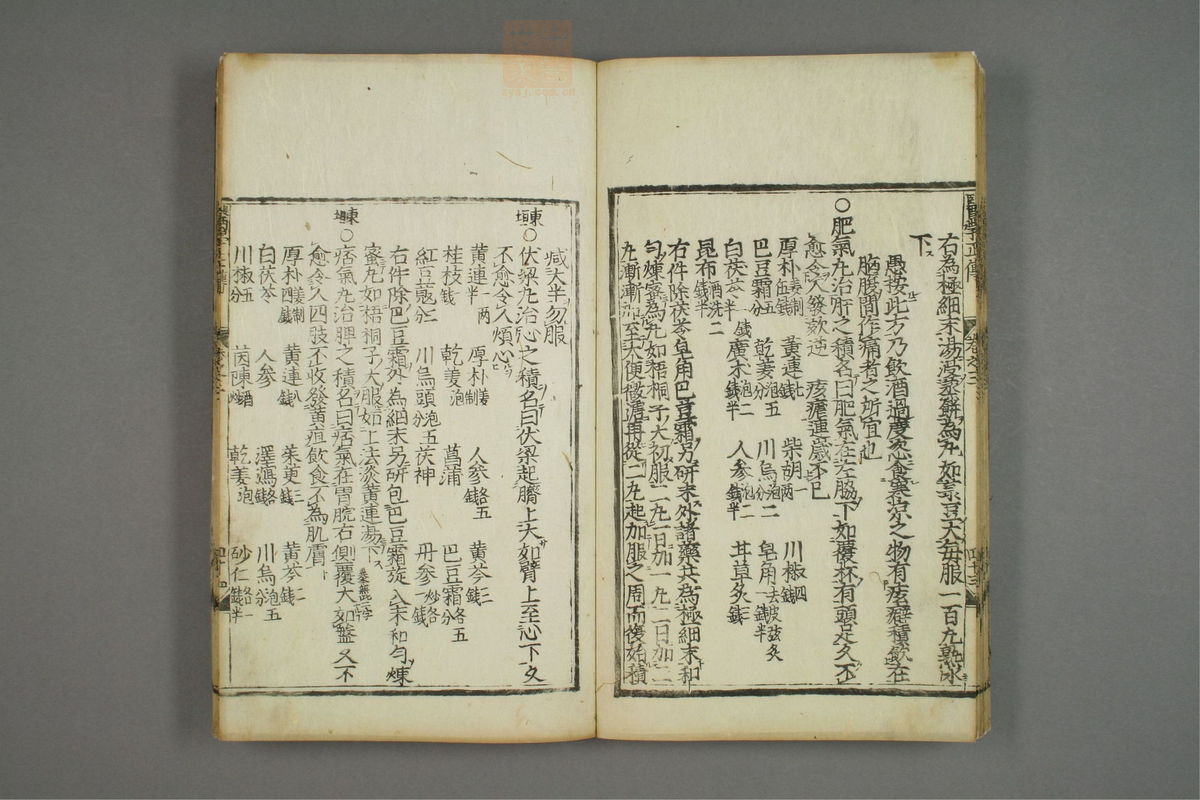 右為極細末湯浸蒸餅為丸如菉豆大每服一百丸熟水
下
愚按此方乃飲酒過度忿食寒凉之物有痃癖積飲在
胸腹間作痛者之所宜也
○肥氣丸治肝之積名曰肥氣在左脇下如覆杯有頭足久不
愈令人發欬逆 痎瘧連歲不已
厚朴姜制五錢 黃連七錢 柴胡一兩 川椒四錢
巴豆霜五分 乾姜泡五分 川烏泡二分 皂角去皮弦炙一錢半
白茯苓一錢半 廣木泡二錢半 人參泡二錢半 甘草炙三錢
昆布酒洗二錢半
右件除茯苓皂角巴豆霜另研末外諸藥共為極細末和
勻煉蜜為丸如梧桐子大初服二丸一日加一丸二日加二
丸漸漸加至大便微溏再從二丸起加服之周而復始積
减大半勿服
東垣○伏梁丸治心之積名曰伏梁起臍上大如臂上至心下久
不愈令人煩心
黃連一兩半 厚朴姜制 人參五錢 黃芩三錢
桂枝一錢 乾姜泡 菖蒲 巴豆霜各五分
紅豆蔻二分 川烏頭泡五分 茯神 丹參炒各一錢
右件除巴豆霜外為細末另研包巴豆霜旋入末和勻煉
蜜丸如梧桐子大服如上法淡黃連湯下
東垣○痞氣丸治脾之積名曰痞氣在胃脘右側覆大如盤久不
愈令人四肢不收發黃疸飲食不為肌膚
厚朴姜制四錢 黃連八錢 茱萸三錢 黃芩二錢
白茯苓 人參 澤瀉各一錢 川烏泡五分
川椒五分 茵陳酒炒 乾姜泡 砂仁各一錢半